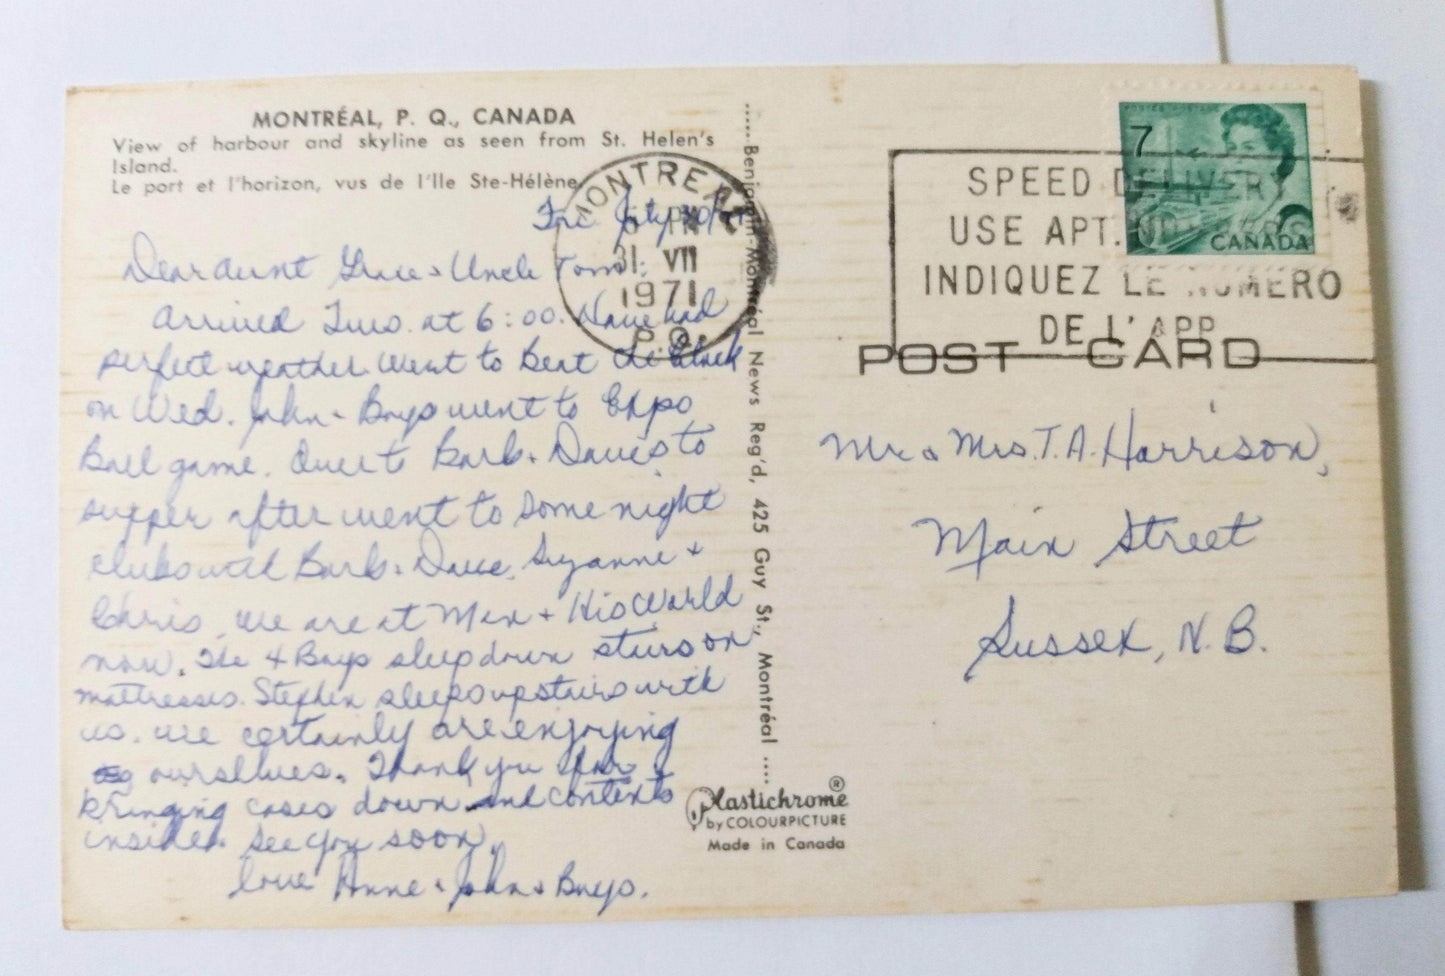 MONTRÉAL, P. Q., CANADA
View of harbour and skyline as seen from St. Helen's
Island.
Le port et l'horizon, vus de l'Ile Ste-Hélène.
Fri July 30/71
Dear Aunt Grace & Uncle Tom:
Arrived Tues. at 6:00. Have had
perfect weather. Went to Beat the Clock
on Wed. John & Boys went to Expo
Ball game. Over to Barb & Dave's to
supper after went to some night
clubs with Barb & Dave, Suzanne &
Chris. We are at Men & His World
now. The 4 Boys sleep down stairs on
mattresses. Stephen sleeps upstairs with
us. We certainly are enjoying
ourselves. Thank you for
bringing cases down and contents
inside. See you soon,
Love Anne & John & Boys.
MONTREAL
PM
31 VII
1971
P.Q.
Benjamin-Montréal News Reg'd, 425 Guy St., Montréal
Plastichrome®
by COLOURPICTURE
Made in Canada
POSTES POSTAGE
7
CANADA
SPEED DELIVERY
USE APT. NUMBERS
INDIQUEZ LE NUMERO
DE L'APP.
POST CARD
Mr & Mrs. T. A. Harrison,
Main Street
Sussex, N. B.